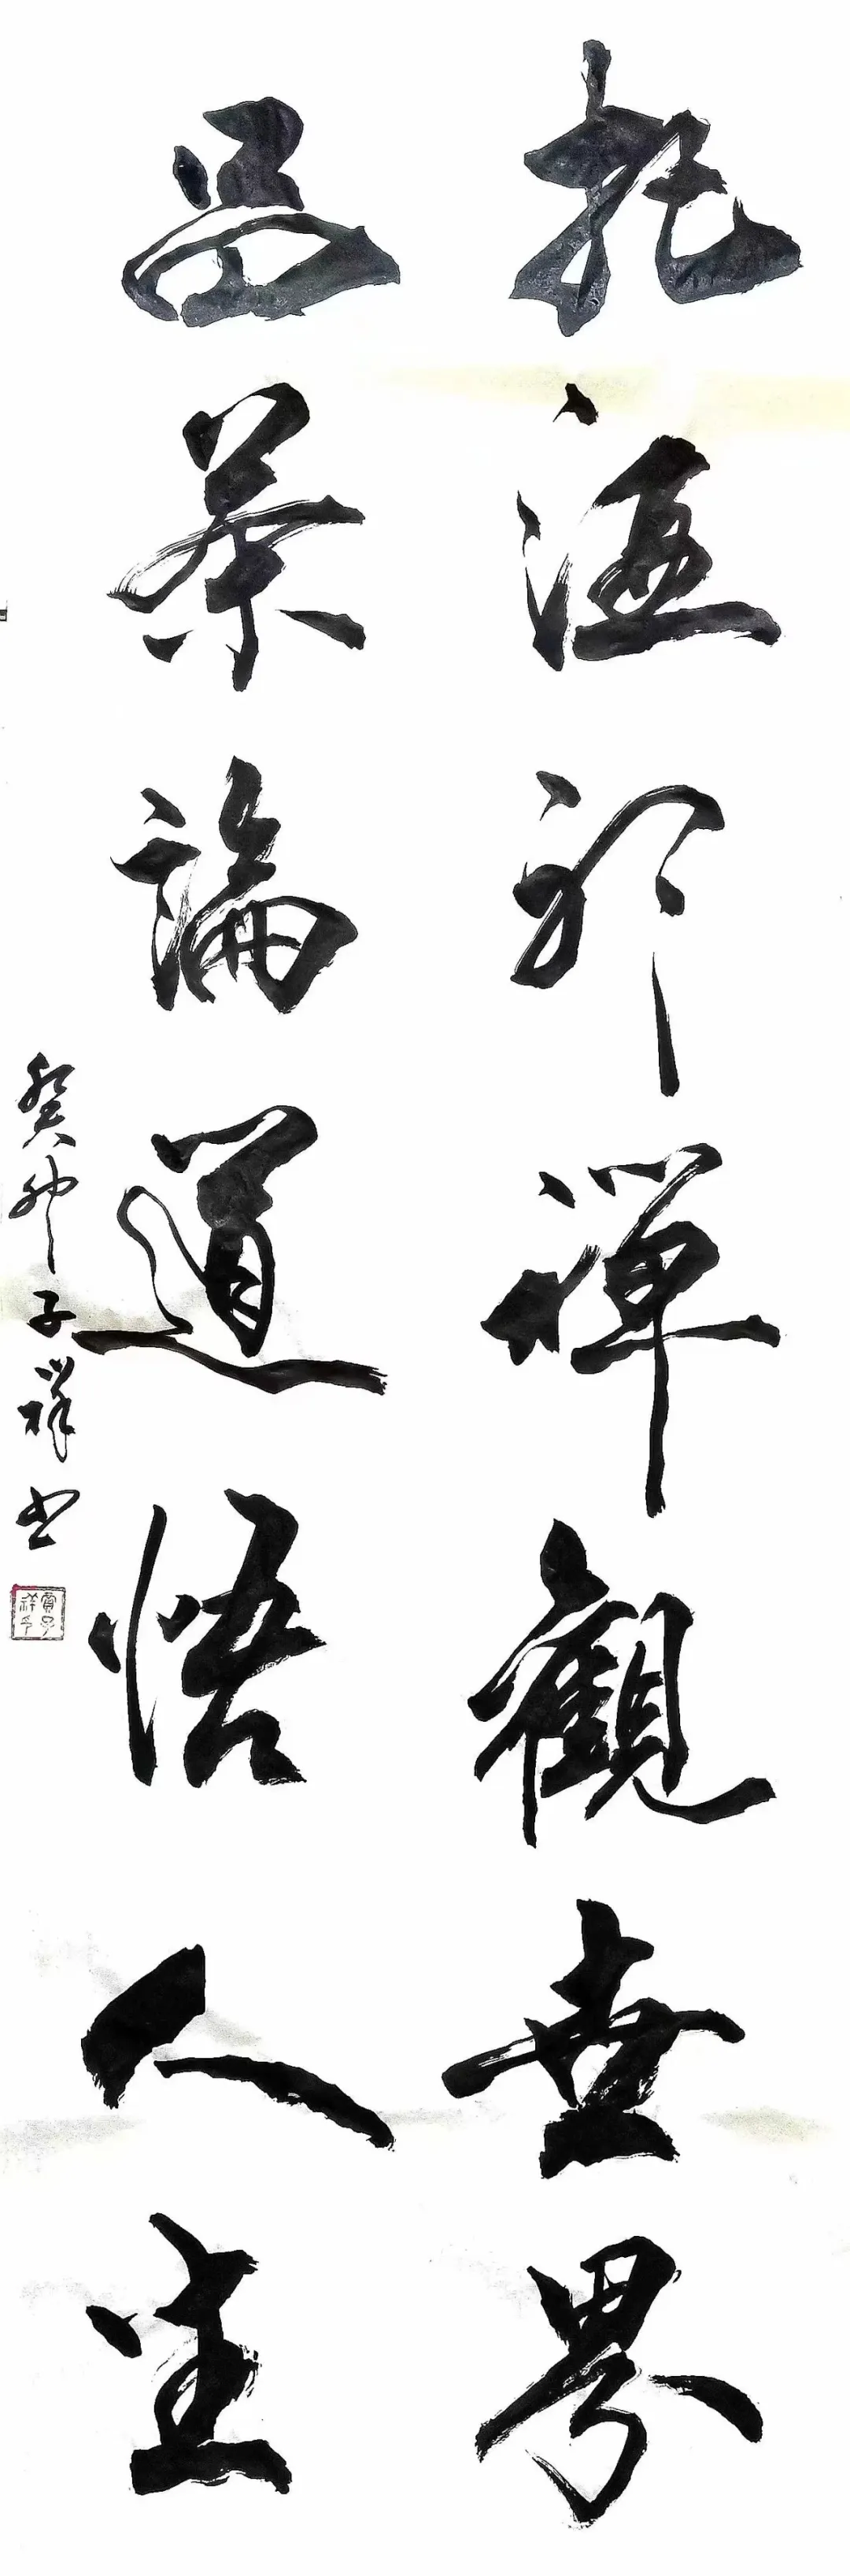 把酒聊禪觀世界
品茶論道悟人生
癸卯子祥书
賈子祥印